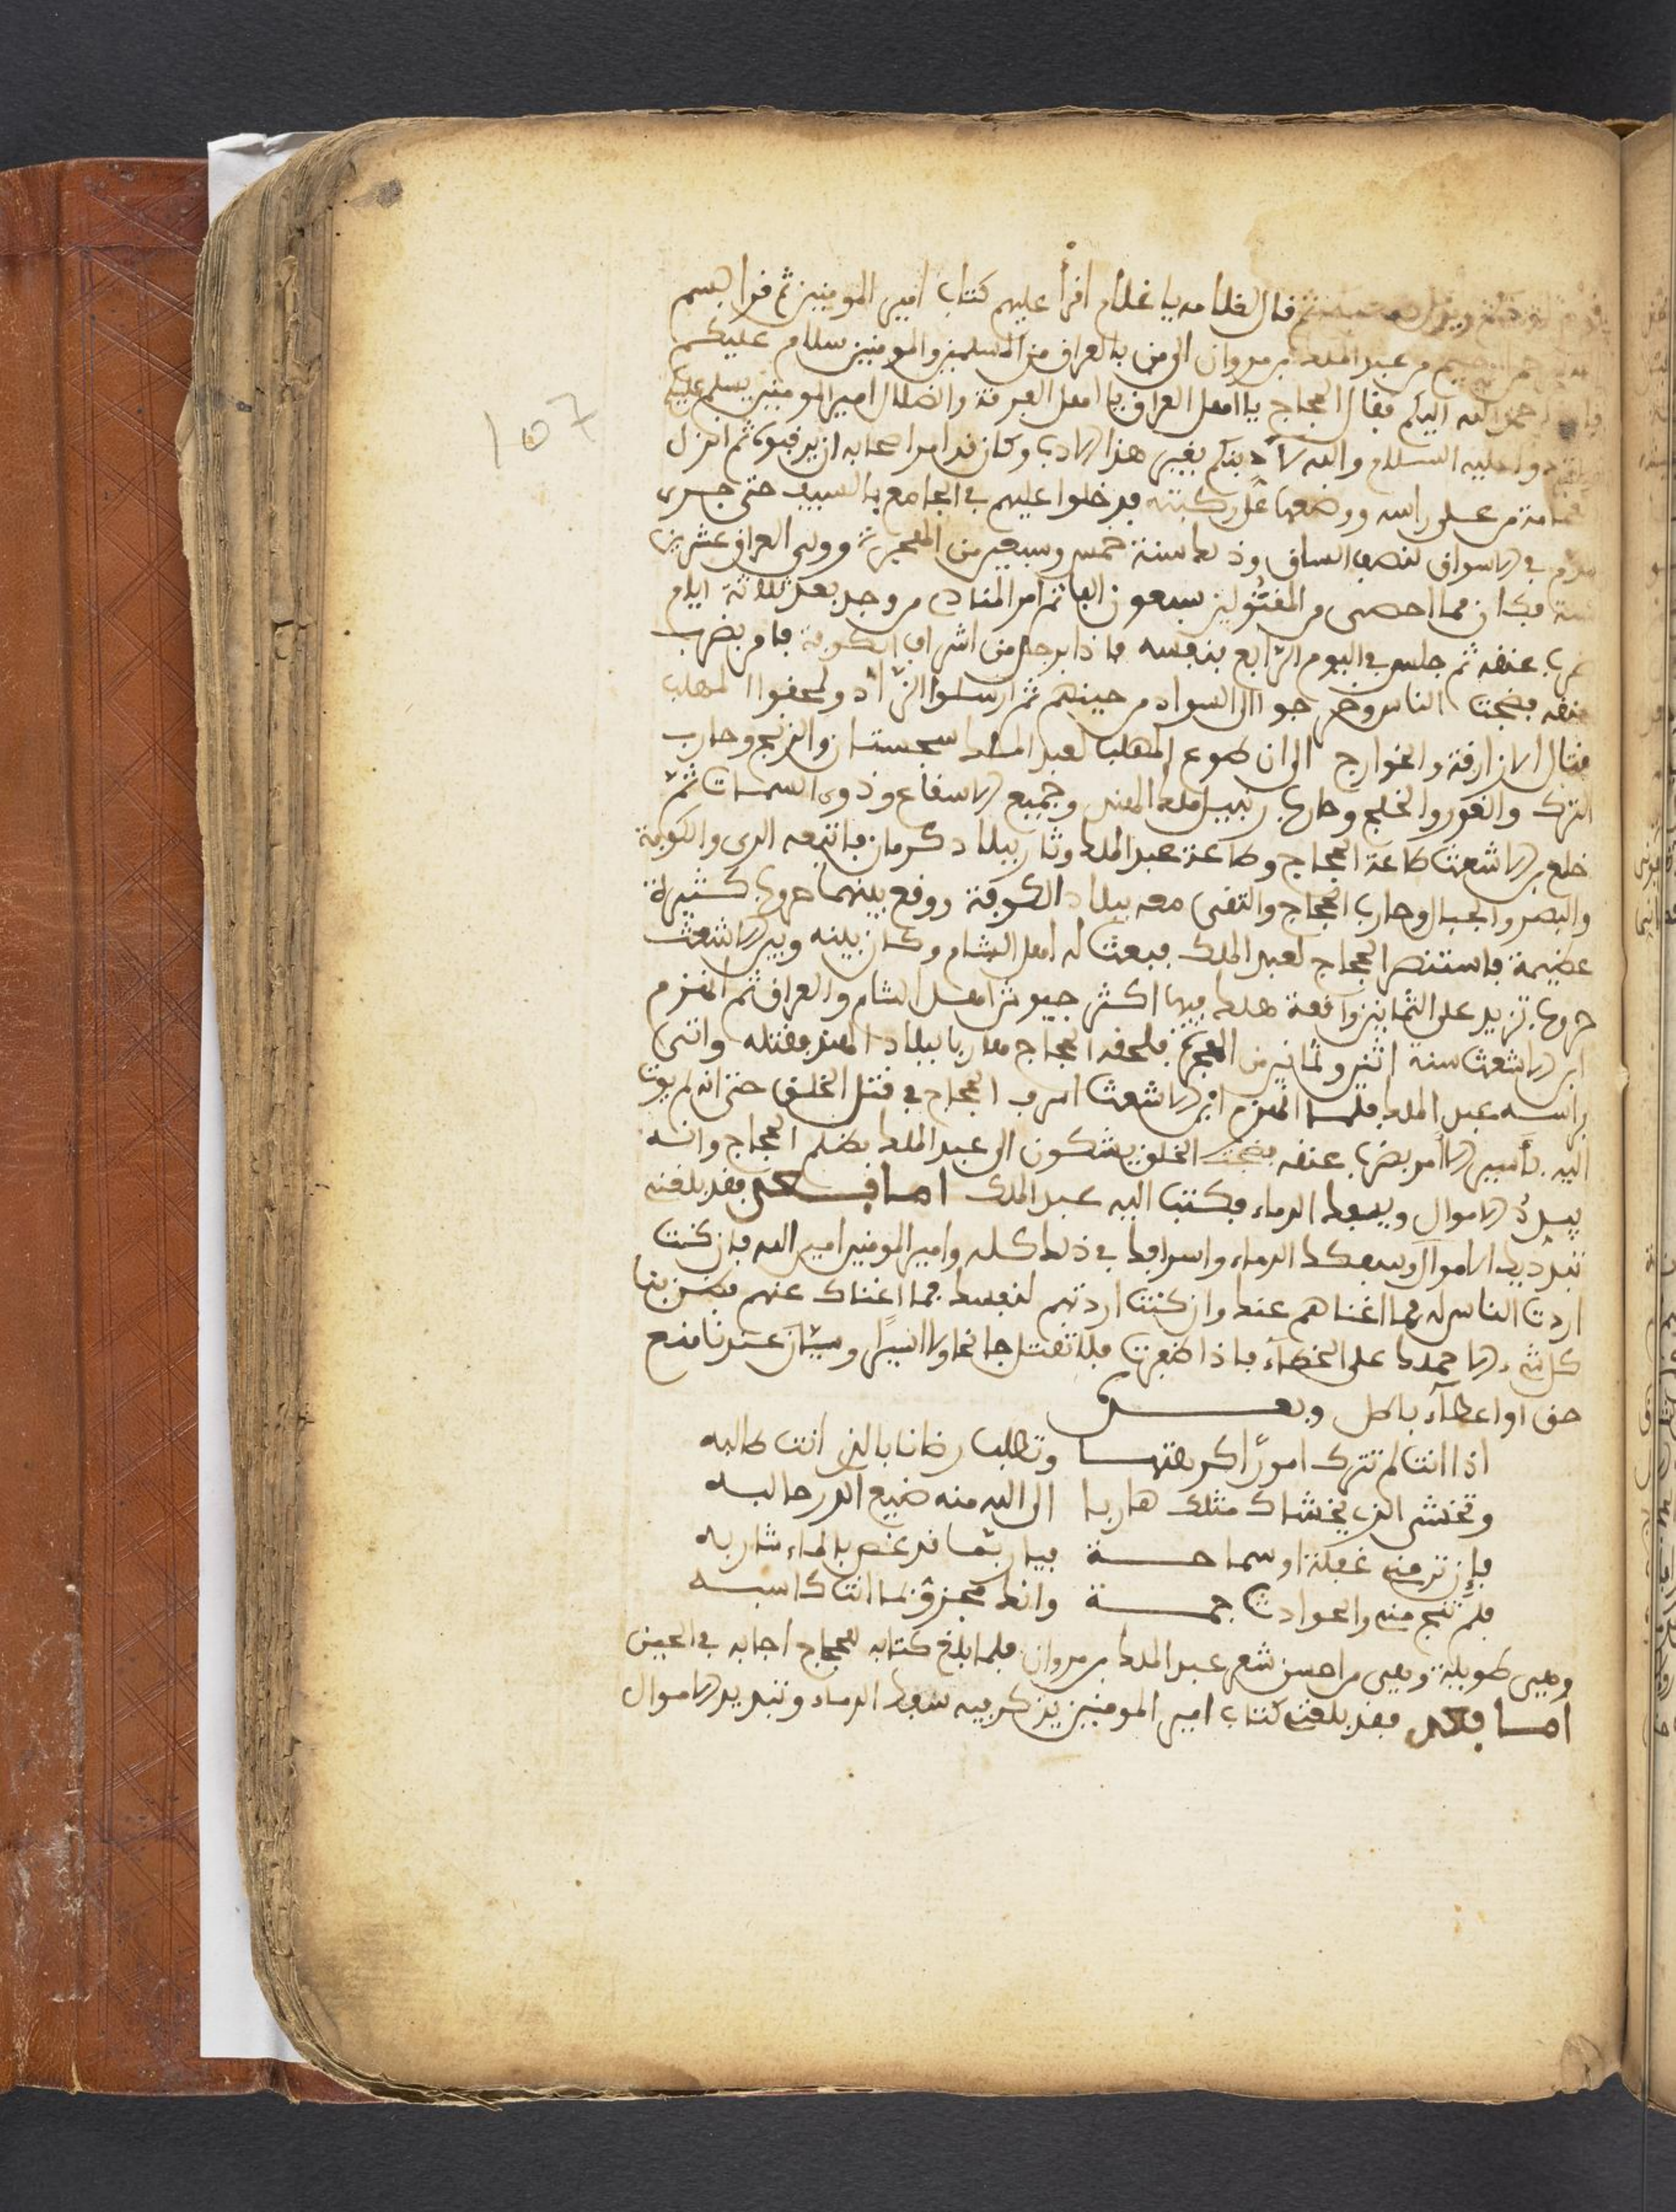 قال لغلامه يا غلام اقرأ عليهم كتاب امير المومنين ثم قرا بسم
من عبد الملك بن مروان الى من بالعراق من المسلمين والمومنين سلام عليكم
احمد الله اليكم فقال الحجاج يا اهل العراق يا اهل الفرقة والضلال امير المومنين يسلم عليكم
عليه السلام والله لأدبنكم بغير هذا الادب وكان قد امر اصحابه ان ثم انزل
من على راسه ووضعها على ركبته فدخلوا عليهم في الجامع بالسيف حتى جرى
في الاسواق لنصف الساق وذلك سنة خمس وسبعين من الهجرة وولي العراق عشرين
سنة فكان مما احصى من المقتولين سبعون الفا ثم امر المناد من وجد بعد ثلاثة ايام
ضرب عنقه ثم جلس في اليوم الرابع بنفسه فاذا برجل من اشراف الكوفة فامر بضرب
عنقه فضجت الناس وخرجوا الى السواد من حينهم ثم ارسلوا الزاد ولحقوا المهلب
فقتال الازارقة والخوارج الى ان طوع المهلب لعبد الملك سجستان والزنج وحارب
الترك والغور والخلج وحارب رتبيل ملك الهند وجميع الاسقاع وذوى السمات ثم
خلع بن الاشعث طاعة الحجاج وطاعة عبد الملك وثار ببلاد كرمان فاتبعه الرى والكوفة
والبصر والجبال وحارب الحجاج والتقى معه ببلاد الكوفة ووقع بينهما حروب كثيرة
عظيمة فاستنصر الحجاج لعبد الملك فبعث له اهل الشام وكان بينه وبين الاشعث
حروب تزيد على الثمانين واقعة هلك فيها اكثر جيوش اهل الشام والعراق ثم انهزم
ابن الاشعث سنة اثنين وثمانين من الهجرة فلحقه الحجاج هاربا ببلاد الهند فقتله واتى
براسه عبد الملك فلما انهزم ابن الاشعث اسرف الحجاج في قتل الخلق حتى انه لم يوت
اليه بأسير الا أمر بضرب عنقه فضجت الخلق يشكون الى عبد الملك بظلم الحجاج وانه
يبدد الاموال ويسفك الدماء فكتب اليه عبد الملك اما بعد فقد بلغني
تبديدك الاموال وسفكك الدماء واسرافك في ذلك كله وامير المومنين امين الله فان كنت
اردت الناس له فما اغناهم عنك وان كنت اردتهم لنفسك فما اغناك عنهم فظن بنا
كل شيء الا حملك على الخطأ فاذا ظفرت فلا تقتل جانحا ولا اسيرا وسيان عندنا منع
حق او اعطاء باطل وبعد
اذا انت لم تترك امورًا كرهتها وتطلب رضانا بالذي انت طالبه
وتخشى الذي يخشاك مثلك هاربا الى الله منه ضيع الدر حالبه
فإن تر مني غفلة او سماحة فيا ربما قد غص بالماء شاربه
فلم تنج مني والحوادث جمة وانك مجزي بما انت كاسبه
وهي طويلة وهي من احسن شعر عبد الملك بن مروان فلما بلغ كتابه للحجاج اجابه في الحين
اما بعد فقد بلغني كتاب امير المومنين يذكر فيه سفك الدماء وتبديد الاموال
107